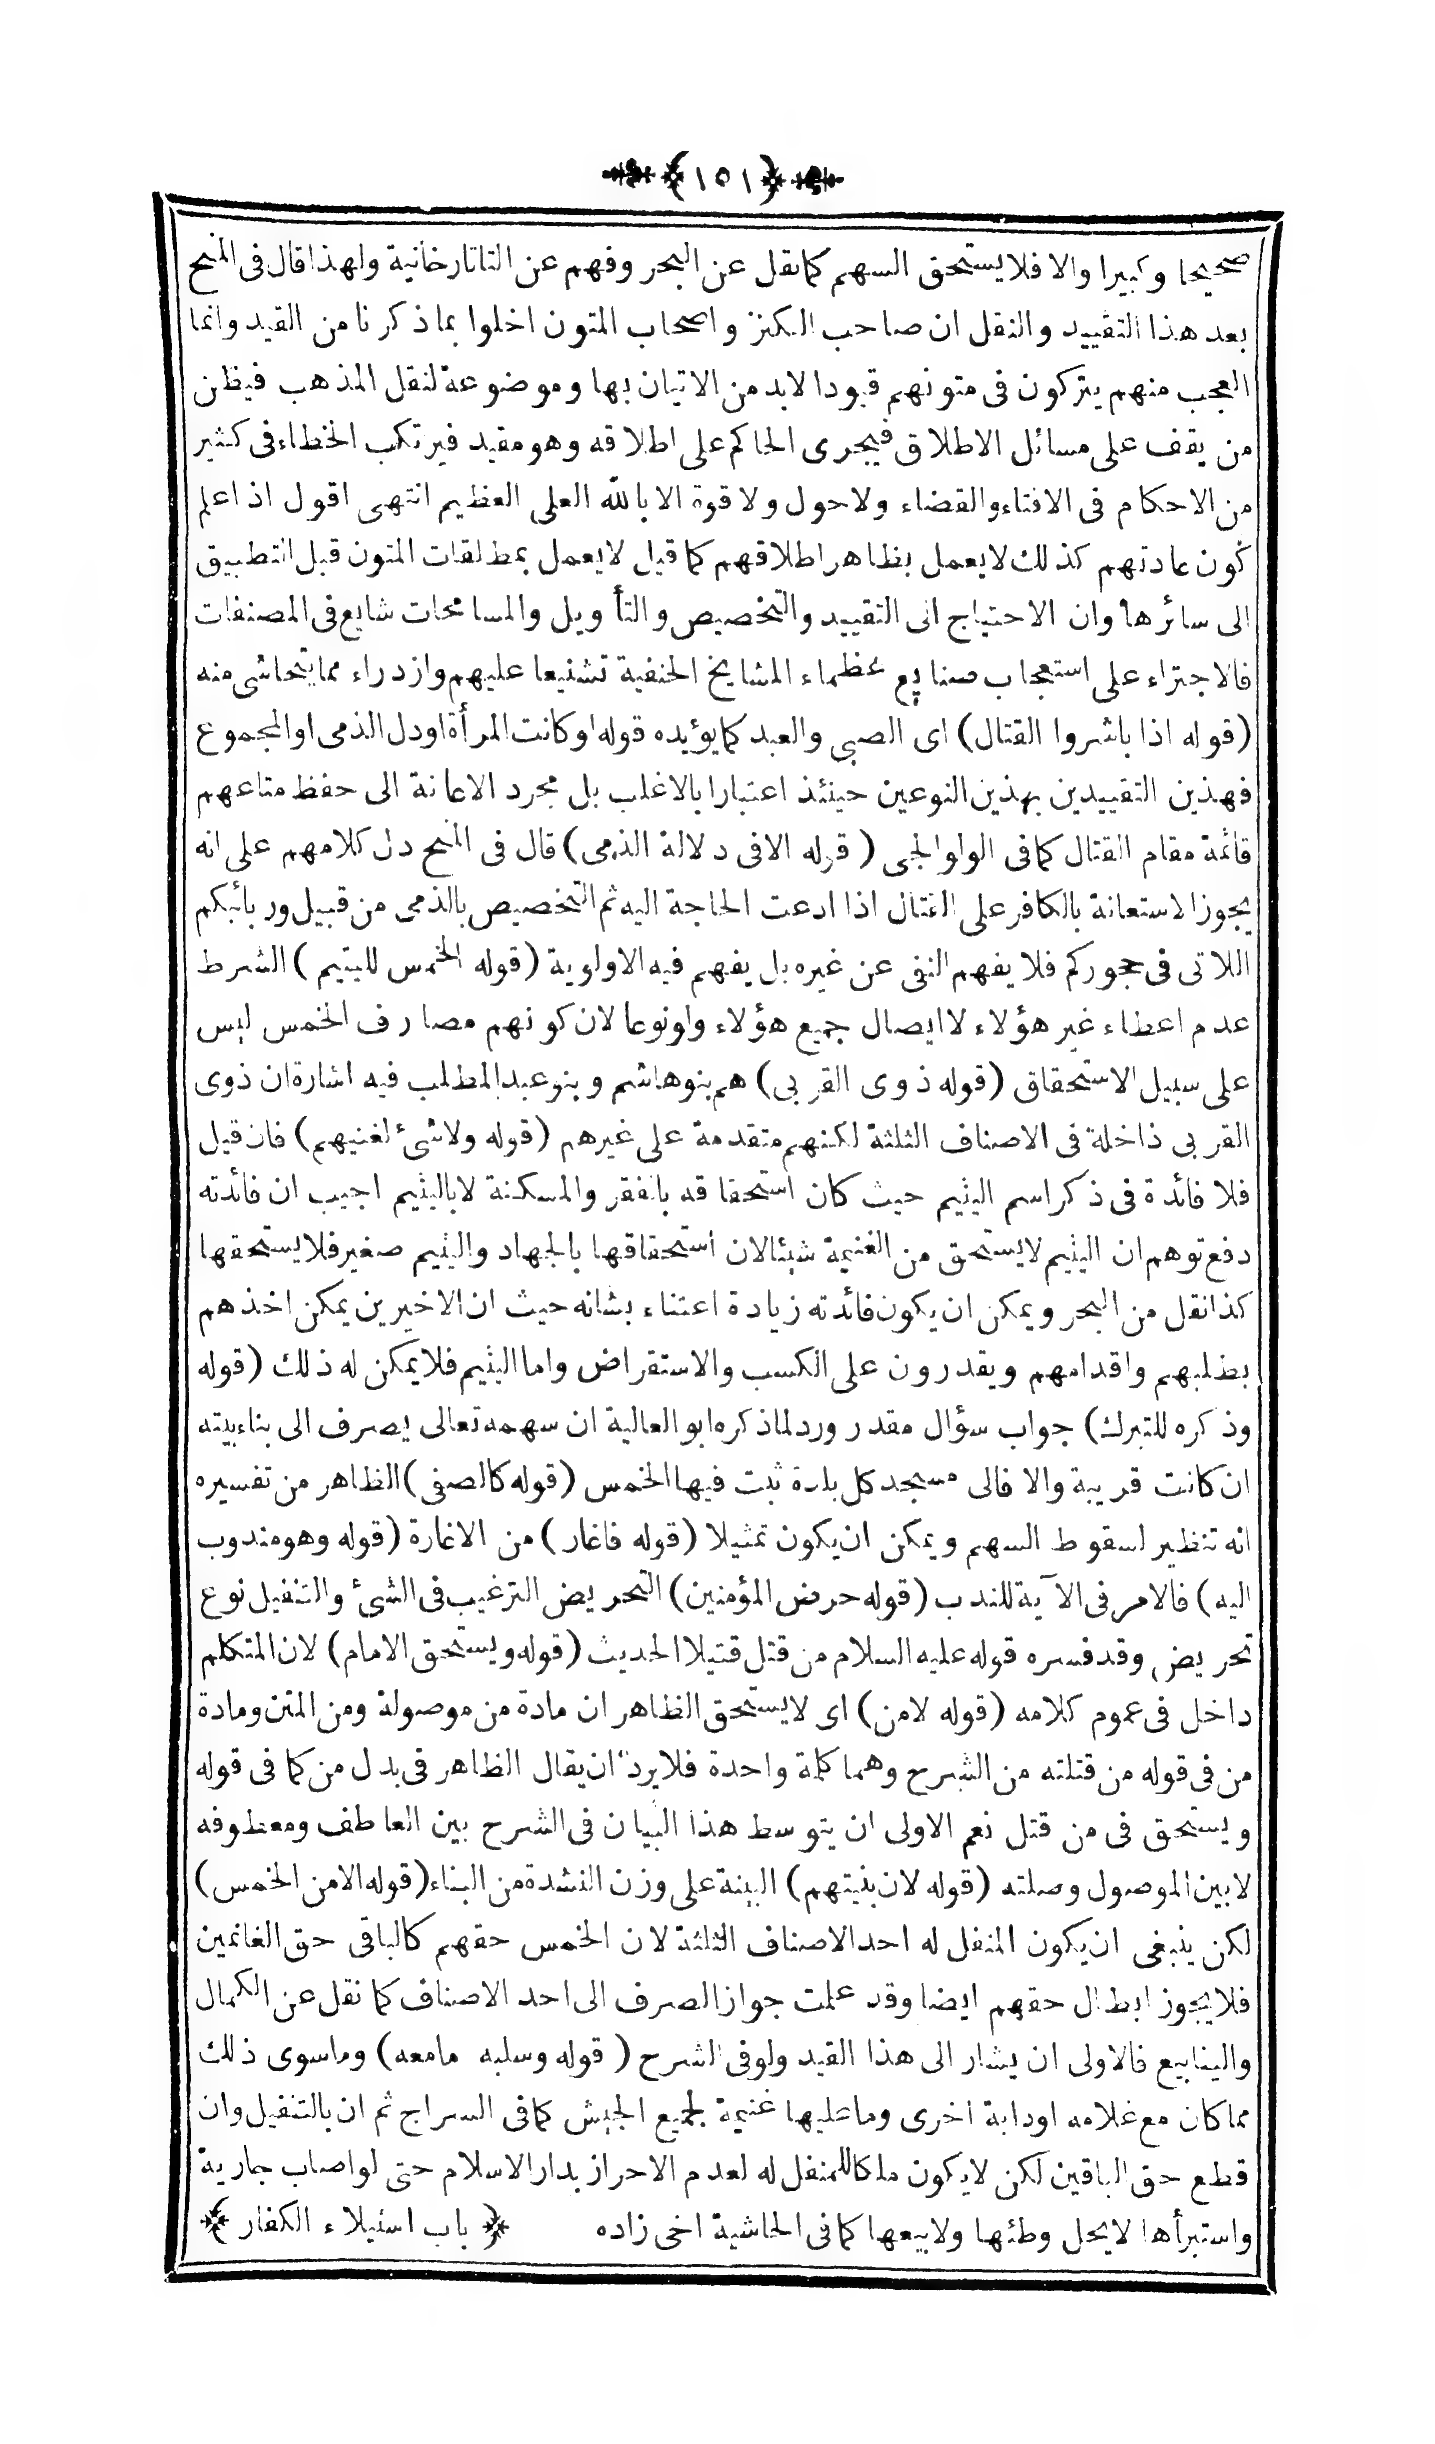 ﴿ ١٥١ ﴾
صحيحا وكبيرا والا فلا يستحق السهم كما نقل عن البحر وفهم عن التاتارخانية ولهذا قال فى المنح
بعد هذا التقييد والنقل ان صاحب الكنز واصحاب المتون اخلوا بما ذكرنا من القيد وانما
العجب منهم يتركون فى متونهم قيودا لابد من الاتيان بها وموضوعة لنقل المذهب فيظن
من يقف على مسائل الاطلاق فيجرى الحاكم على اطلاقه وهو مقيد فيرتكب الخطاء فى كثير
من الاحكام فى الافتاء والقضاء ولاحول ولا قوة الا بالله العلى العظيم انتهى اقول اذ اعلم
كون عادتهم كذلك لايعمل بظاهر اطلاقهم كما قيل لايعمل بمطلقات المتون قبل التطبيق
الى سائرها وان الاحتياج الى التقييد والتخصيص والتأويل والمسامحات شايع فى المصنفات
فالاجتراء على استعجاب صنايع عظماء المشايخ الحنفية تشنيعا عليهم وازدراء مما يتحاشى منه
(قوله اذا باشروا القتال) اى الصبى والعبد كما يؤيده قوله او كانت المرأة اودل الذمى او المجموع
فهذين التقييدين بهذين النوعين حينئذ اعتبارا بالاغلب بل مجرد الاعانة الى حفظ متاعهم
قائمة مقام القتال كما فى الولوالجى (قوله الا فى دلالة الذمى) قال فى المنح دل كلامهم على انه
يجوز الاستعانة بالكافر على القتال اذا ادعت الحاجة اليه ثم التخصيص بالذمى من قبيل وربائبكم
اللاتى فى حجوركم فلا يفهم النفى عن غيره بل يفهم فيه الاولوية (قوله الخمس لليتيم) الشرط
عدم اعطاء غير هؤلاء لا ايصال جميع هؤلاء ولونوعا لان كونهم مصارف الخمس ليس
على سبيل الاستحقاق (قوله ذوى القربى) هم بنو هاشم وبنو عبد المطلب فيه اشارة ان ذوى
القربى داخلة فى الاصناف الثلثة لكنهم متقدمة على غيرهم (قوله ولاشئ لغنيهم) فان قيل
فلا فائدة فى ذكر اسم اليتيم حيث كان استحقاقه بالفقر والمسكنة لا باليتيم اجيب ان فائدته
دفع توهم ان اليتيم لايستحق من الغنيمة شيئا لان استحقاقها بالجهاد واليتيم صغير فلا يستحقها
كذا نقل من البحر ويمكن ان يكون فائدته زيادة اعتناء بشانه حيث ان الاخيرين يمكن اخذهم
بطلبهم واقدامهم ويقدرون على الكسب والاستقراض واما اليتيم فلا يمكن له ذلك (قوله
وذكره للتبرك) جواب سؤال مقدر ورد لما ذكره ابو العالية ان سهمه تعالى يصرف الى بناء بيته
ان كانت قريبة والا فالى مسجد كل بلدة ثبت فيها الخمس (قوله كالصفى) الظاهر من تفسيره
انه تنظير لسقوط السهم ويمكن ان يكون تمثيلا (قوله فاغار) من الاغارة (قوله وهو مندوب
اليه) فالامر فى الآية للندب (قوله حرض المؤمنين) التحريض الترغيب فى الشئ والتنفيل نوع
تحريض وقد فسره قوله عليه السلام من قتل قتيلا الحديث (قوله ويستحق الامام) لان المتكلم
داخل فى عموم كلامه (قوله لامن) اى لايستحق الظاهر ان مادة من موصولة ومن المتن ومادة
من فى قوله من قتلته من الشرح وهما كلمة واحدة فلا يرد ان يقال الظاهر فى بدل من كما فى قوله
ويستحق فى من قتل نعم الاولى ان يتوسط هذا البيان فى الشرح بين العاطف ومعطوفه
لا بين الموصول وصلته (قوله لان بنيتهم) البينة على وزن النشدة من البناء (قوله الا من الخمس)
لكن ينبغى ان يكون المنفل له احد الاصناف الثلثة لان الخمس حقهم كالباقى حق الغانمين
فلا يجوز ابطال حقهم ايضا وقد علمت جواز الصرف الى احد الاصناف كما نقل عن الكمال
والينابيع فالاولى ان يشار الى هذا القيد ولو فى الشرح (قوله وسلبه مامعه) وما سوى ذلك
مما كان مع غلامه او دابة اخرى وما عليها غنيمة لجميع الجيش كما فى السراج ثم ان بالتنفيل وان
قطع حق الباقين لكن لايكون ملكا للمنفل له لعدم الاحراز بدار الاسلام حتى لو اصاب جارية
واستبرأها لايحل وطئها ولابيعها كما فى الحاشية اخى زاده ﴿ باب استيلاء الكفار ﴾